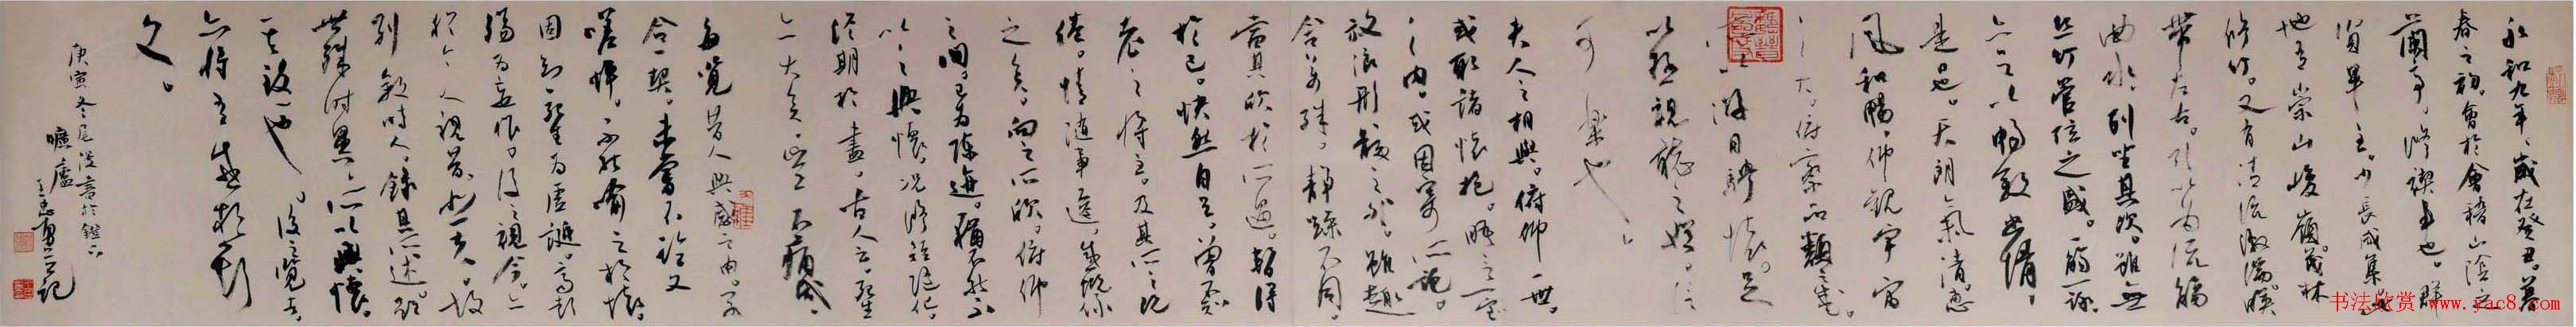 永和九年，歲在癸丑。暮
春之初，會於會稽山陰之
蘭亭，脩禊事也。群
賢畢至，少長咸集。此
地有崇山峻嶺，茂林
脩竹。又有清流激湍，映
帶左右。引以為流觴
曲水，列坐其次。雖無
絲竹管弦之盛。一觴一詠。
亦足以暢敘幽情。
是日也。天朗氣清，惠
風和暢，仰觀宇宙
之大，俯察品類之盛。
所以游目騁懷。足
以極視聽之娛。信
可樂也。
夫人之相與。俯仰一世。
或取諸懷抱。晤言一室
之內。或因寄所託。
放浪形骸之外。雖趣
舍萬殊。靜躁不同。
當其欣於所遇。暫得
於己。快然自足。曾不知
老之將至。及其所之既
倦。情隨事遷。感慨係
之矣。向之所欣。俯仰
之間。已為陳跡。猶不能不
以之興懷。況脩短隨化。
終期於盡。古人云。死生
亦大矣。豈不痛哉。
每覽昔人興感之由。若
合一契。未嘗不臨文
嗟悼。不能喻之於懷。
固知一死生為虛誕。齊彭
殤為妄作。後之視今。亦
猶今之視昔。悲夫。故
列敘時人。錄其所述。雖
世殊時異。所以興懷。
其致一也。後之覽者。
亦將有感於斯
文。
庚寅冬
曠廬
书法欣赏 www.yac8.com